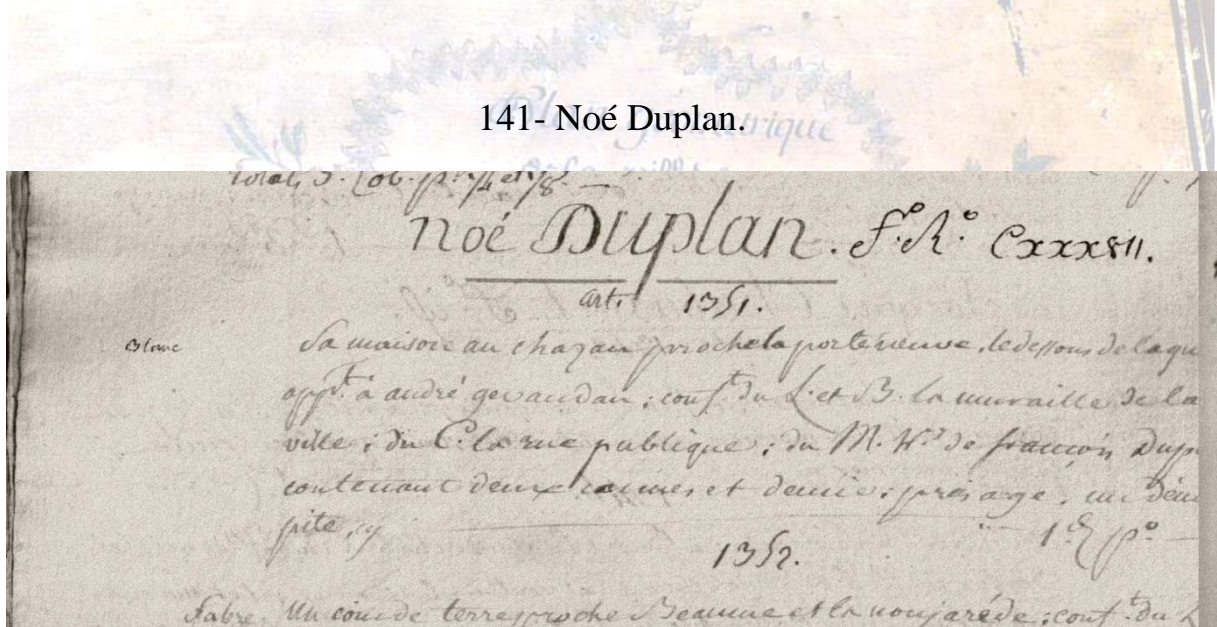 141- Noé Duplan.
Plan géométrique
Total, 3. Cob. p. 1/4 et 1/8.
noé Duplan. f.º R.º Cxxxviii.
art. 1351.
Blanc
Sa maison au chazau proche la porte neuve, le dessous de laqu
app.t à andré gevaudan ; conf.t du L. et B. la muraille de la
ville ; du C. la rue publique ; du M. H.rs de françois Dup
contenant deux cannes et demie ; presage, un den
pite, cy 1 d. p.º
1352.
Fabre. Un coin de terre proche Beaume et la noujarède ; conf.t du L